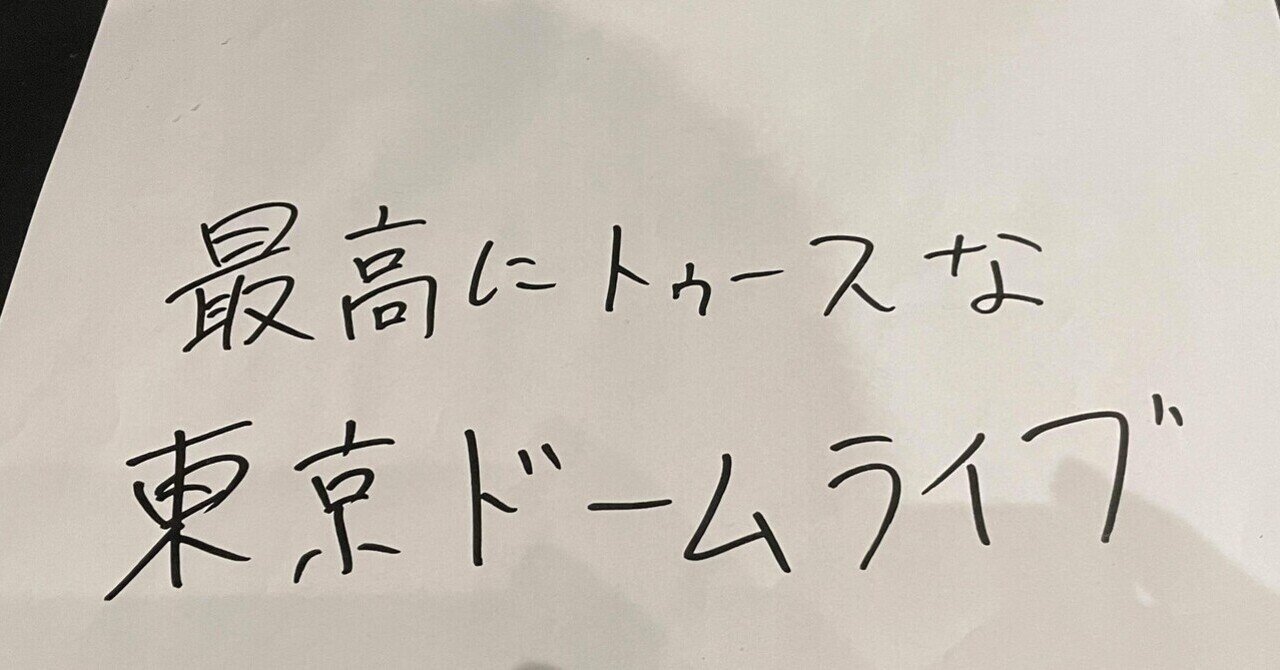 最高にトゥースな
東京ドームライブ